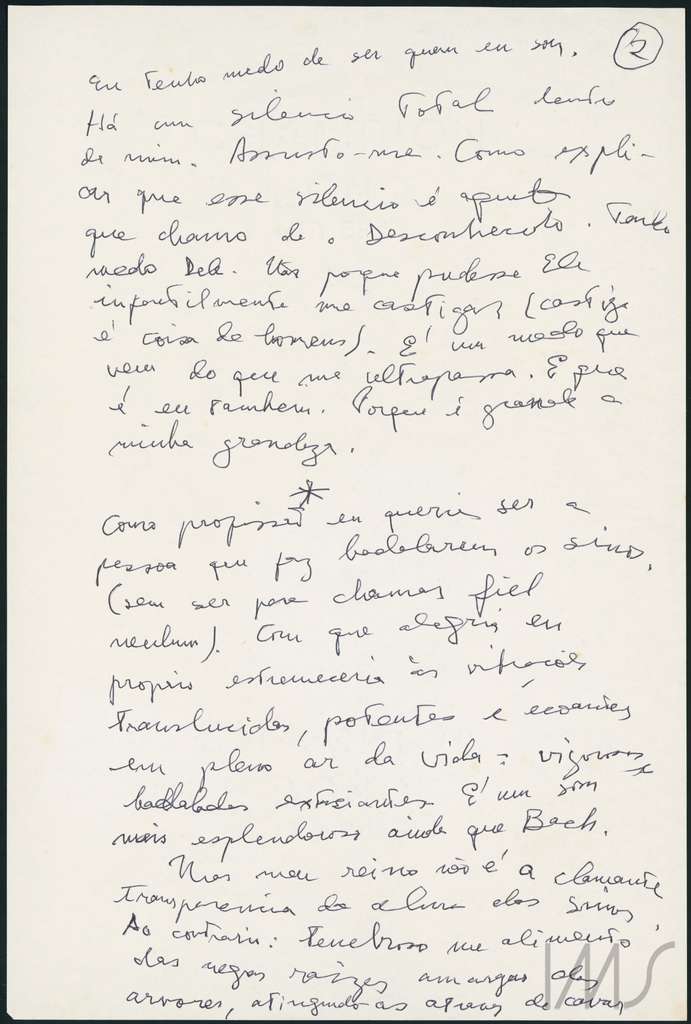 2
Eu tenho medo de ser quem eu sou.
Há um silencio total dentro
de mim. Assusto-me. Como expli-
car que esse silencio é aquele
que chamo de o Desconhecido. Tenho
medo Dele. Não porque pudesse Ele
infantilmente me castigar (castigo
é coisa de homens). É um medo que
vem do que me ultrapassa. E que
é eu tambem. Porque é grande a
minha grandeza.
*
Como profissão eu queria ser a
pessoa que faz badalarem os sinos.
(sem ser para chamar fiel
nenhum). Com que alegria eu
proprio estremeceria às vibrações
translucidas, potentes e ecoantes
em pleno ar da vida: vigorosas
badaladas extasiantes É um som
mais esplendoroso ainda que Bach.
Mas meu reino não é a clamante
transparencia da alma dos sinos.
Ao contrario: tenebroso me alimento
das negras raizes amargas das
arvores, atingindo as atraves de cavar
IMS